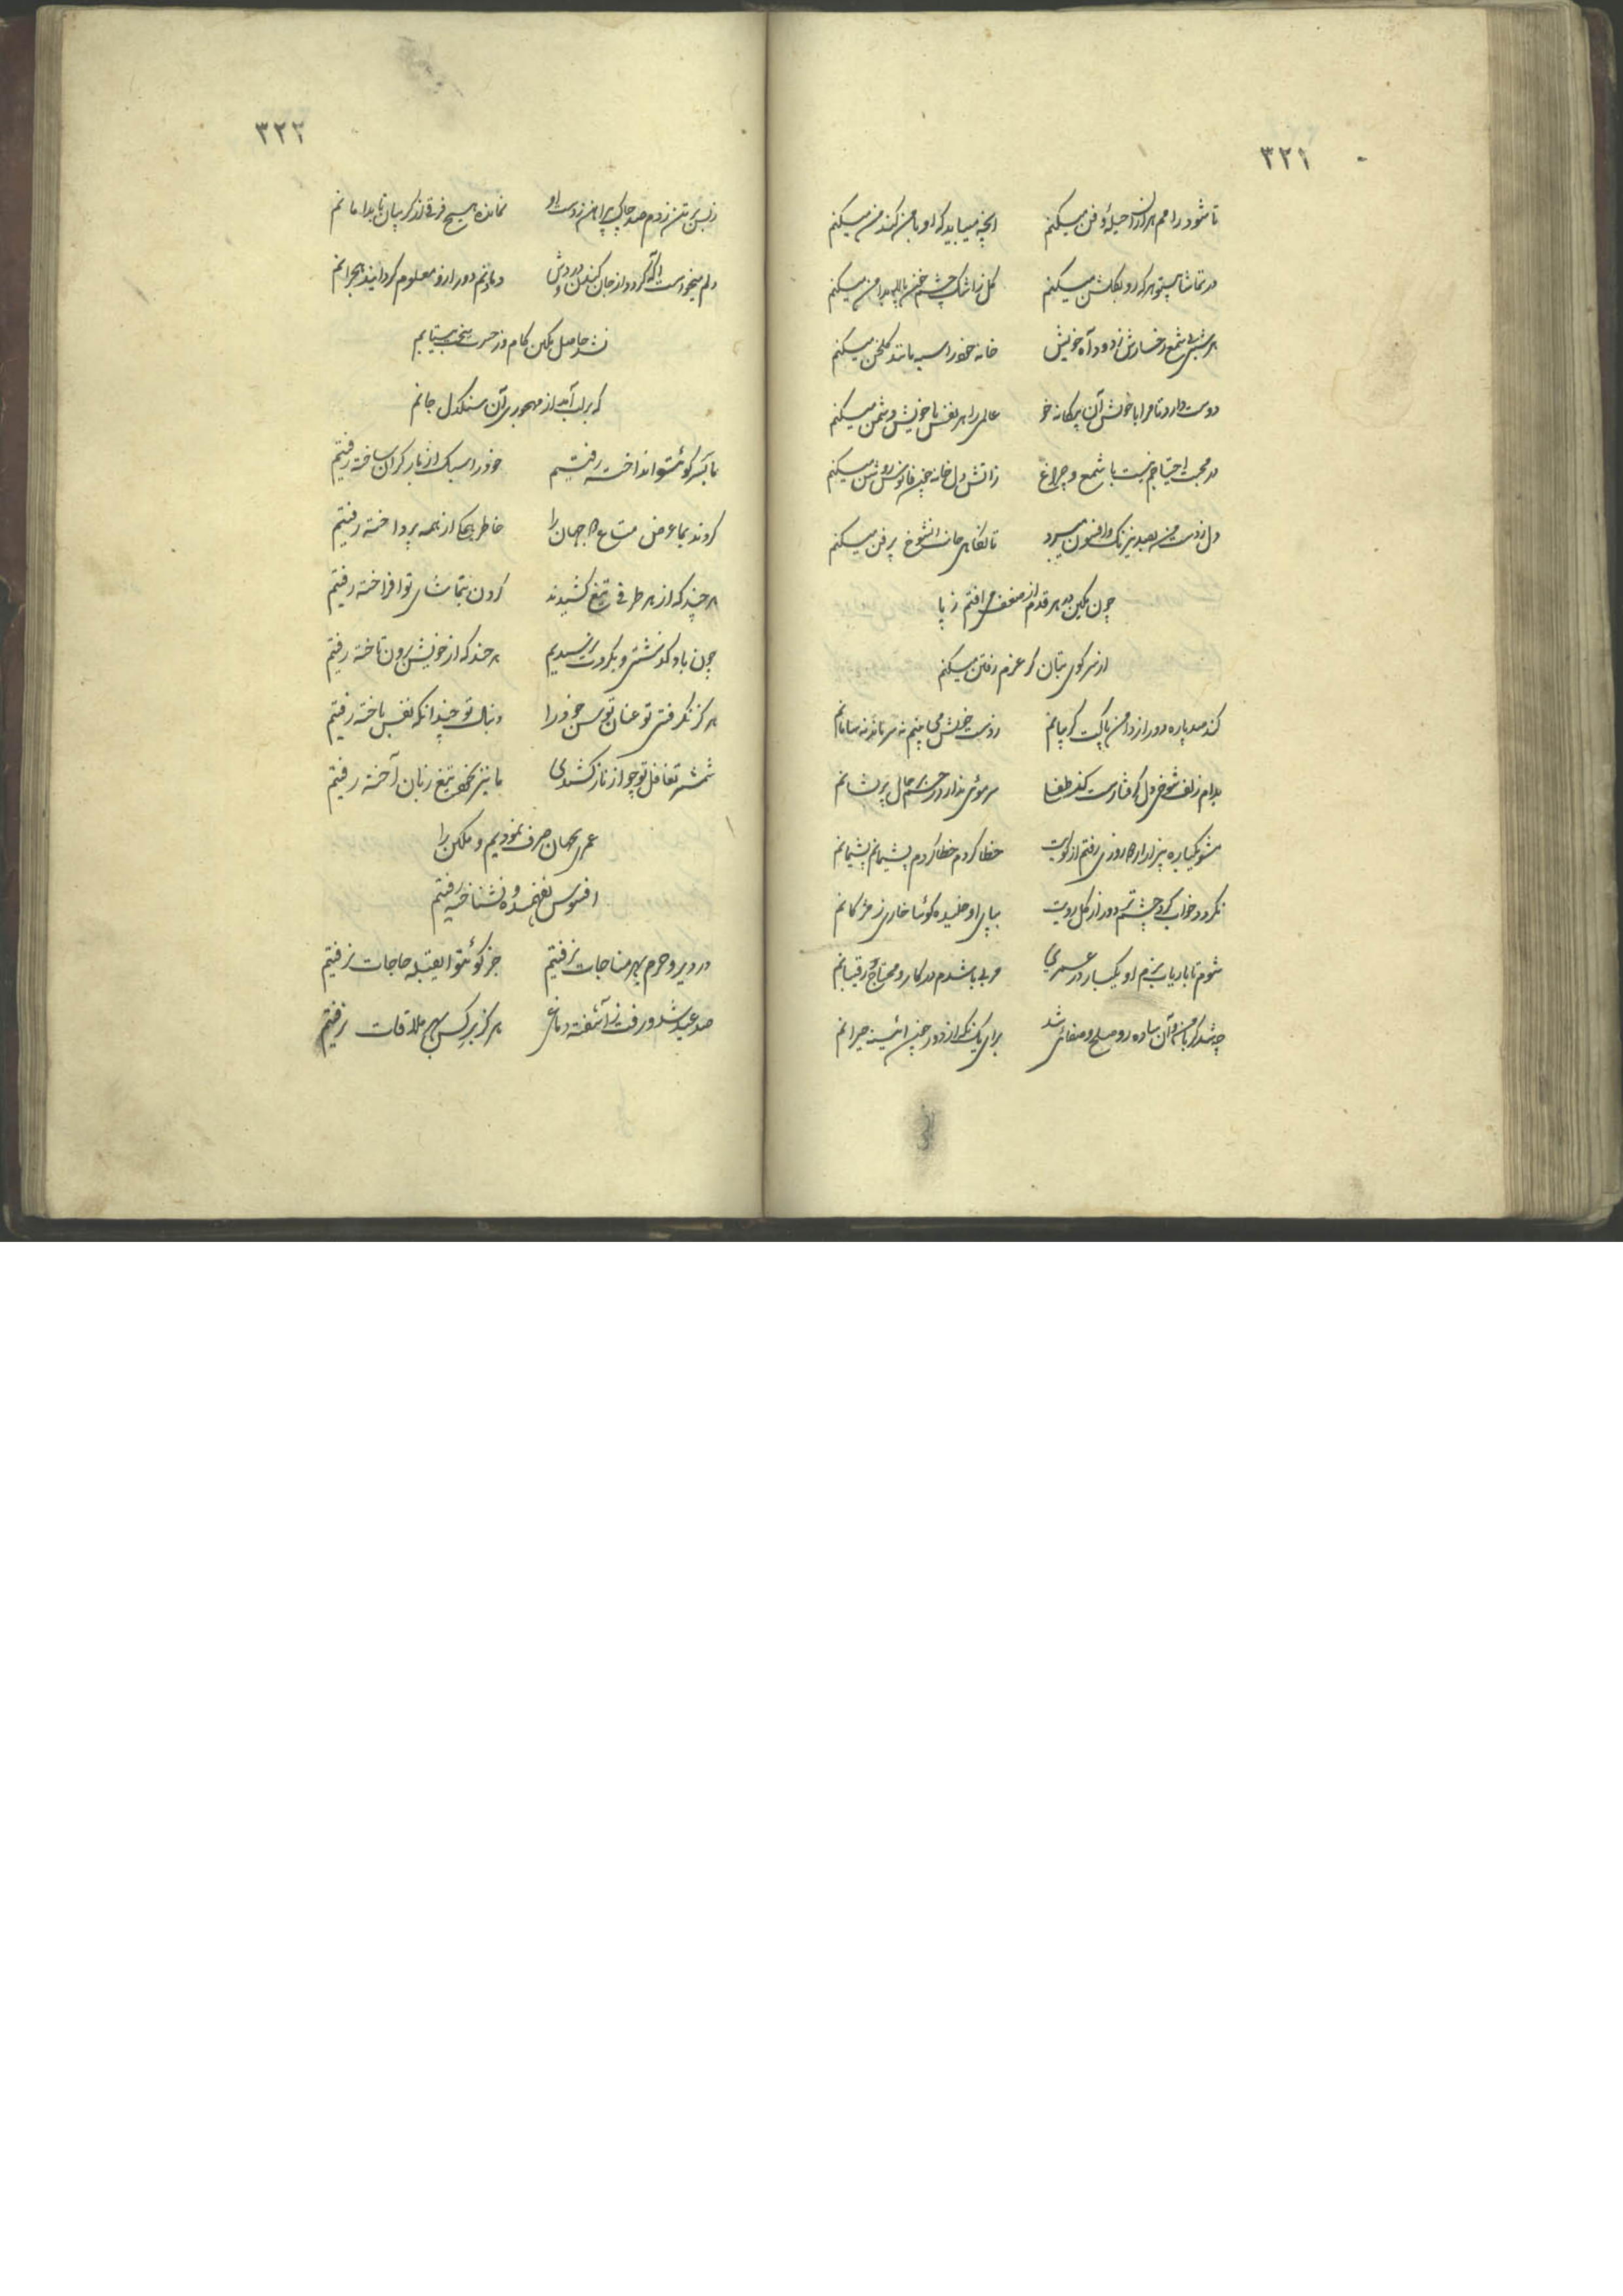 ۳۲۱
تا شود رامم هزاران حیله و فن میکنم
آنچه میباید که او با من کند من میکنم
در تماشا بیتو هرگه رو بگلشن میکنم
گل ز اشک چشم خونپالا بدامن میکنم
هر شبی بی شمع رخسارش ز دود آه خویش
خانه خود را سیه مانند گلخن میکنم
دوست دارد تا مرا با خویش آن بیگانه خو
عالمی را هر نفس با خویش دشمن میکنم
در محبت احتیاجم نیست با شمع و چراغ
ز آتش دل خانه چون فانوس روشن میکنم
دل ز دست من بصد نیرنگ و افسون میبرد
تا نگاهی جانب آنشوخ پر فن میکنم
چون مکین در هر قدم از ضعف می افتم ز پا
از سر کوی بتان گر عزم رفتن میکنم
کند صد پاره دور از دامن پاکت گریبانم
ز دست خویش می بینم نه سر ماند نه سامانم
بدام زلف شوخی دل گرفتارست کز طفلی
سر موئی ندارد رحم بر حال پریشانم
مشو یکباره بیزار ار دو روزی رفتم از کویت
خطا کردم خطا کردم پشیمانم پشیمانم
نگردد خواب گرد چشم تر دور از گل رویت
بپای او خلیده گوئیا خاری ز مژگانم
شوم تا باریاب بزم او یکبار در عمری
مربی باشدم درکار و محتاج رقیبانم
چه شد گر با من آن ساده رو صلح و صفائی شد
برای یک نگه از دور چون آئینه حیرانم
۳۲۲
ز بس بر تن زدم صد چاک پیراهن ز دست او
نمانده هیچ فرقی از گریبان تا بدامانم
دلم میخواست آگه گردد از جان کندن دردش
دمادم دور ازو معلوم گردانید هجرانم
نشد حاصل مکین کام و ز حسرت سخت بیتابم
که بر لب آمد از مهجوری آن سنگدل جانم
ما سر بسر کوئتو انداخته رفتیم
خود را سبک از بار گران ساخته رفتیم
کردند بما عرض متاع دو جهان را
خاطر بیکی از همه پرداخته رفتیم
هر چند که از هر طرفی تیغ کشیدند
گردن بتماشای تو افراخته رفتیم
چون باد گذشتی و بگردت نرسیدیم
هر چند که از خویش برون تاخته رفتیم
هر گز نگرفتی تو عنان توسن خود را
دنبال تو چندانکه نفس باخته رفتیم
شمشیر تغافل تو چو از ناز کشیدی
ما نیز بخود تیغ زبان آخته رفتیم
عمری بجهان صرف نمودیم و مکین را
افسوس نفهمیده و نشناخته رفتیم
در دیر و حرم بهر مناجات نرفتیم
جز کوئتو ای قبله حاجات نرفتیم
صد عید شد و رفت ز آشفته دماغی
هر گز بر کس بهر ملاقات نرفتیم